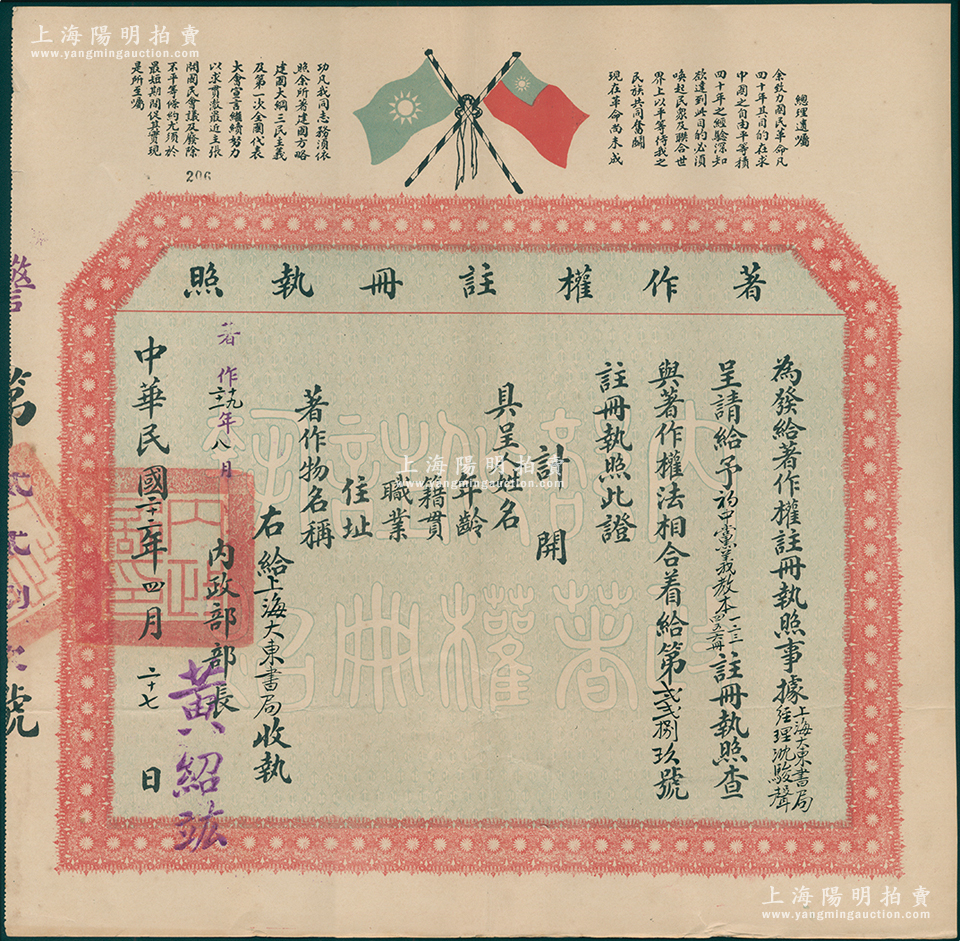 上海陽明拍賣
www.yangmingauction.com
總理遺囑
余致力國民革命凡
四十年其目的在求
中國之自由平等積
四十年之經驗深知
欲達到此目的必須
喚起民眾及聯合世
界上以平等待我之
民族共同奮鬭
現在革命尚未成
功凡我同志務須依
照余所著建國方略
建國大綱三民主義
及第一次全國代表
大會宣言繼續努力
以求貫澈最近主張
開國民會議及廢除
不平等條約尤須於
最短期間促其實現
是所至囑
206
著作權註冊執照
為發給著作權註冊執照事據上海大東書局經理沈駿聲
呈請給予初中黨義教本一二三四五六冊註冊執照查
與著作權法相合着給第貳貳捌玖號
註冊執照此證
計開
具呈人姓名
年齡
籍貫
職業
住址
著作物名稱
右給上海大東書局收執
內政部部長
黃紹竑
著作十九年八月
中華民國二十二年四月二十七日
第
號
上海陽明拍賣
www.yangmingauction.com
上海陽明拍賣
www.yangmingauction.com